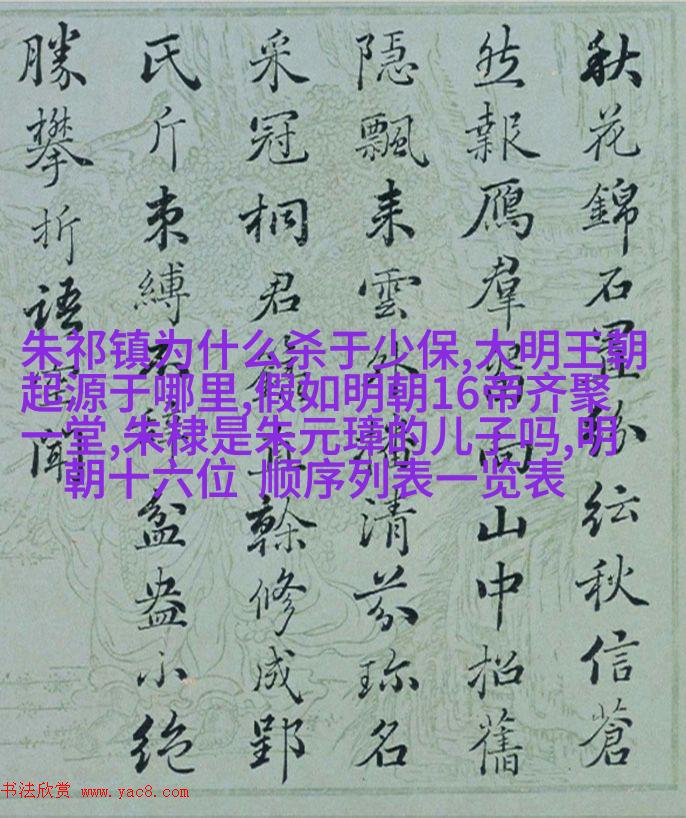 朱祁镇为什么杀于少保,大明王朝
起源于哪里,假如明朝16帝齐聚
一堂,朱棣是朱元璋的儿子吗,明
朝十六位 顺序列表一览表
秋花錦石紛紜秋信蒼
然報鴈羣向山中招舊
隱飄来雲外清芬珎名
采冠桐君幹修成郢
氏斤束縛盆盎小絶
勝攀折語聞
书法欣赏 www.yac8.com